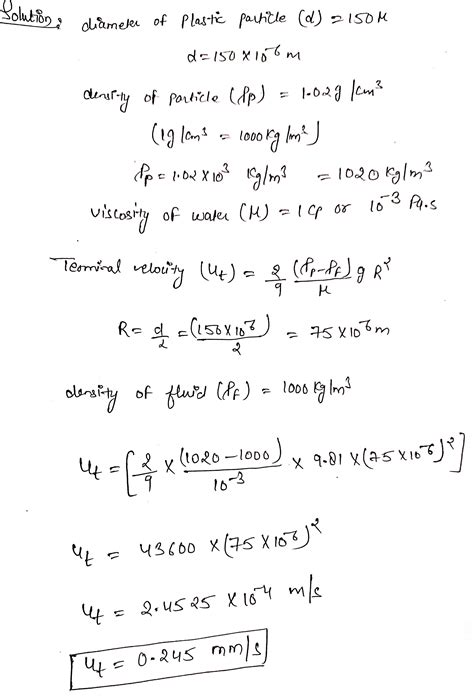 Solution: diameter of plastic particle (d) = 150 μ
d = 150 × 10⁻⁶ m
density of particle (ρp) = 1.02 g /cm³
(1g /cm³ = 1000 kg /m³)
ρp = 1.02 × 10³ kg/m³ = 1020 kg/m³
viscosity of water (μ) = 1 cp or 10⁻³ Pa.s
Terminal velocity (ut) = 2/9 (ρp - ρf)/μ g R²
R = d/2 = (150 × 10⁻⁶)/2 = 75 × 10⁻⁶ m
density of fluid (ρf) = 1000 kg/m³
ut = [2/9 × (1020 - 1000)/10⁻³ × 9.81 × (75 × 10⁻⁶)²]
ut = 43600 × (75 × 10⁻⁶)²
ut = 2.4525 × 10⁻⁴ m/s
ut = 0.245 mm/s